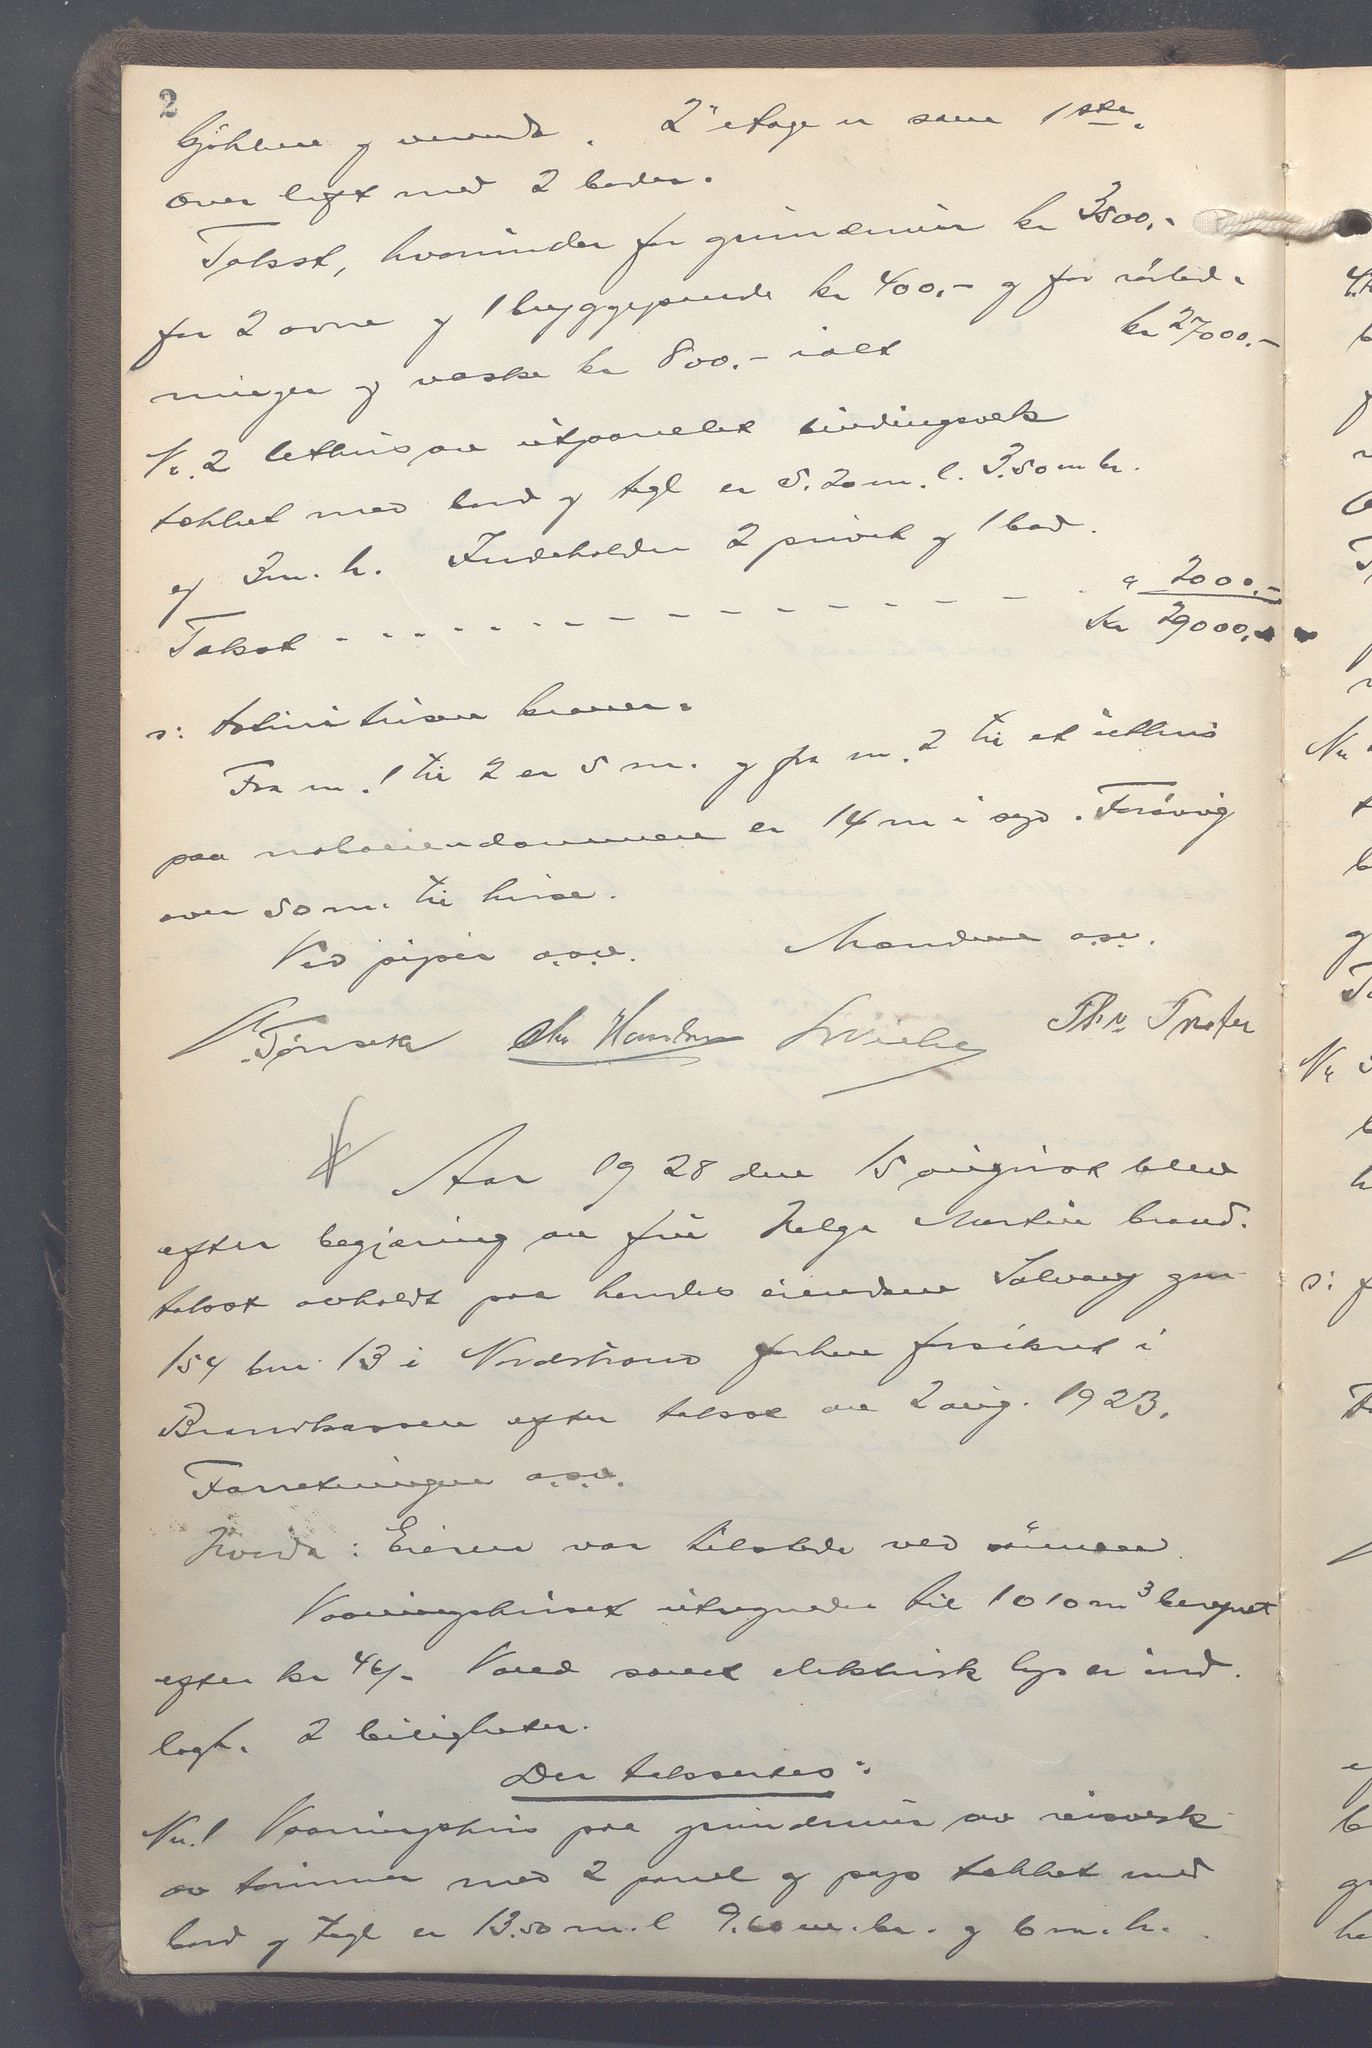 2
kjøkken og veranda. 2" etage er som 1ste.
Over loft med 2 boder.
Takst, hvorunder for grundmur kr 3500,-
for 2 ovne og 1 bryggepande kr 400,- og for rörled-
ninger og vaske kr 800.- ialt kr 27000.-
Nr. 2 Uthus av utpanelet bindingsverk
tækket med bord og tegl er 5.20 m. l. 3.50 m br.
og 3 m. h. Indeholder 2 privet og 1 bod.
Takst - - - - - - - - - - - - - - " 2000.-
kr 29000,-
s: totiniitusen kroner.
Fra nr. 1 til 2 er 5 m. og fra nr. 2 til et uthus
paa naboeiendommen er 14 m i syd. Forøvrig
over 50 m. til huse.
Ved piper o.s.v. Mændene o.s.v.
Aar 1928 den 15 august blev
efter begjæring av fru Helga Martin brand-
takst avholdt paa hendes eiendom Solvang gnr
154 bnr 13 i Nordstrand forhen forsikret i
Brandkassen efter takst av 2 aug. 1923.
Forretningen o.s.v.
Hvorda: Eieren var tilstede ved
Vaaningshuset utregnedes til 1010 m3 beregnet
efter kr Vand samt elektrisk lys er ind-
lagt. 2 leiligheter.
Der takseredes:
Nr. 1 Vaaningshus paa grundmur av reisverk
av tømmer med 2 panel og pap tækket med
bord og tegl er 13.50 m. l 9.60 m. br. og 6 m. h.